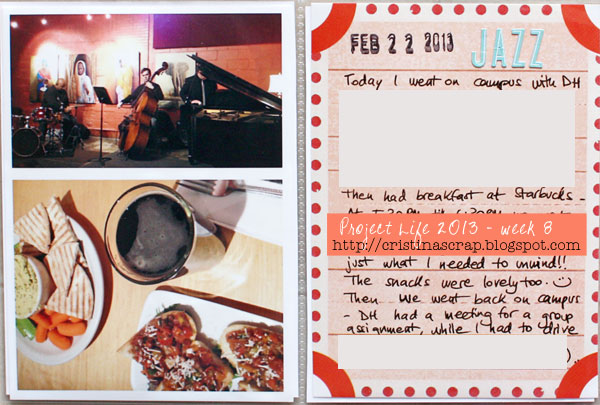 FEB 22 2013 JAZZ
Today I went on campus with DH
Then had breakfast at Starbucks -
Project Life 2013 - week 8
http://cristinascrap.blogspot.com
just what I needed to unwind!!
The snacks were lovely too.
Then we went back on campus
- DH had a meeting for a group
assignment, while I had to drive